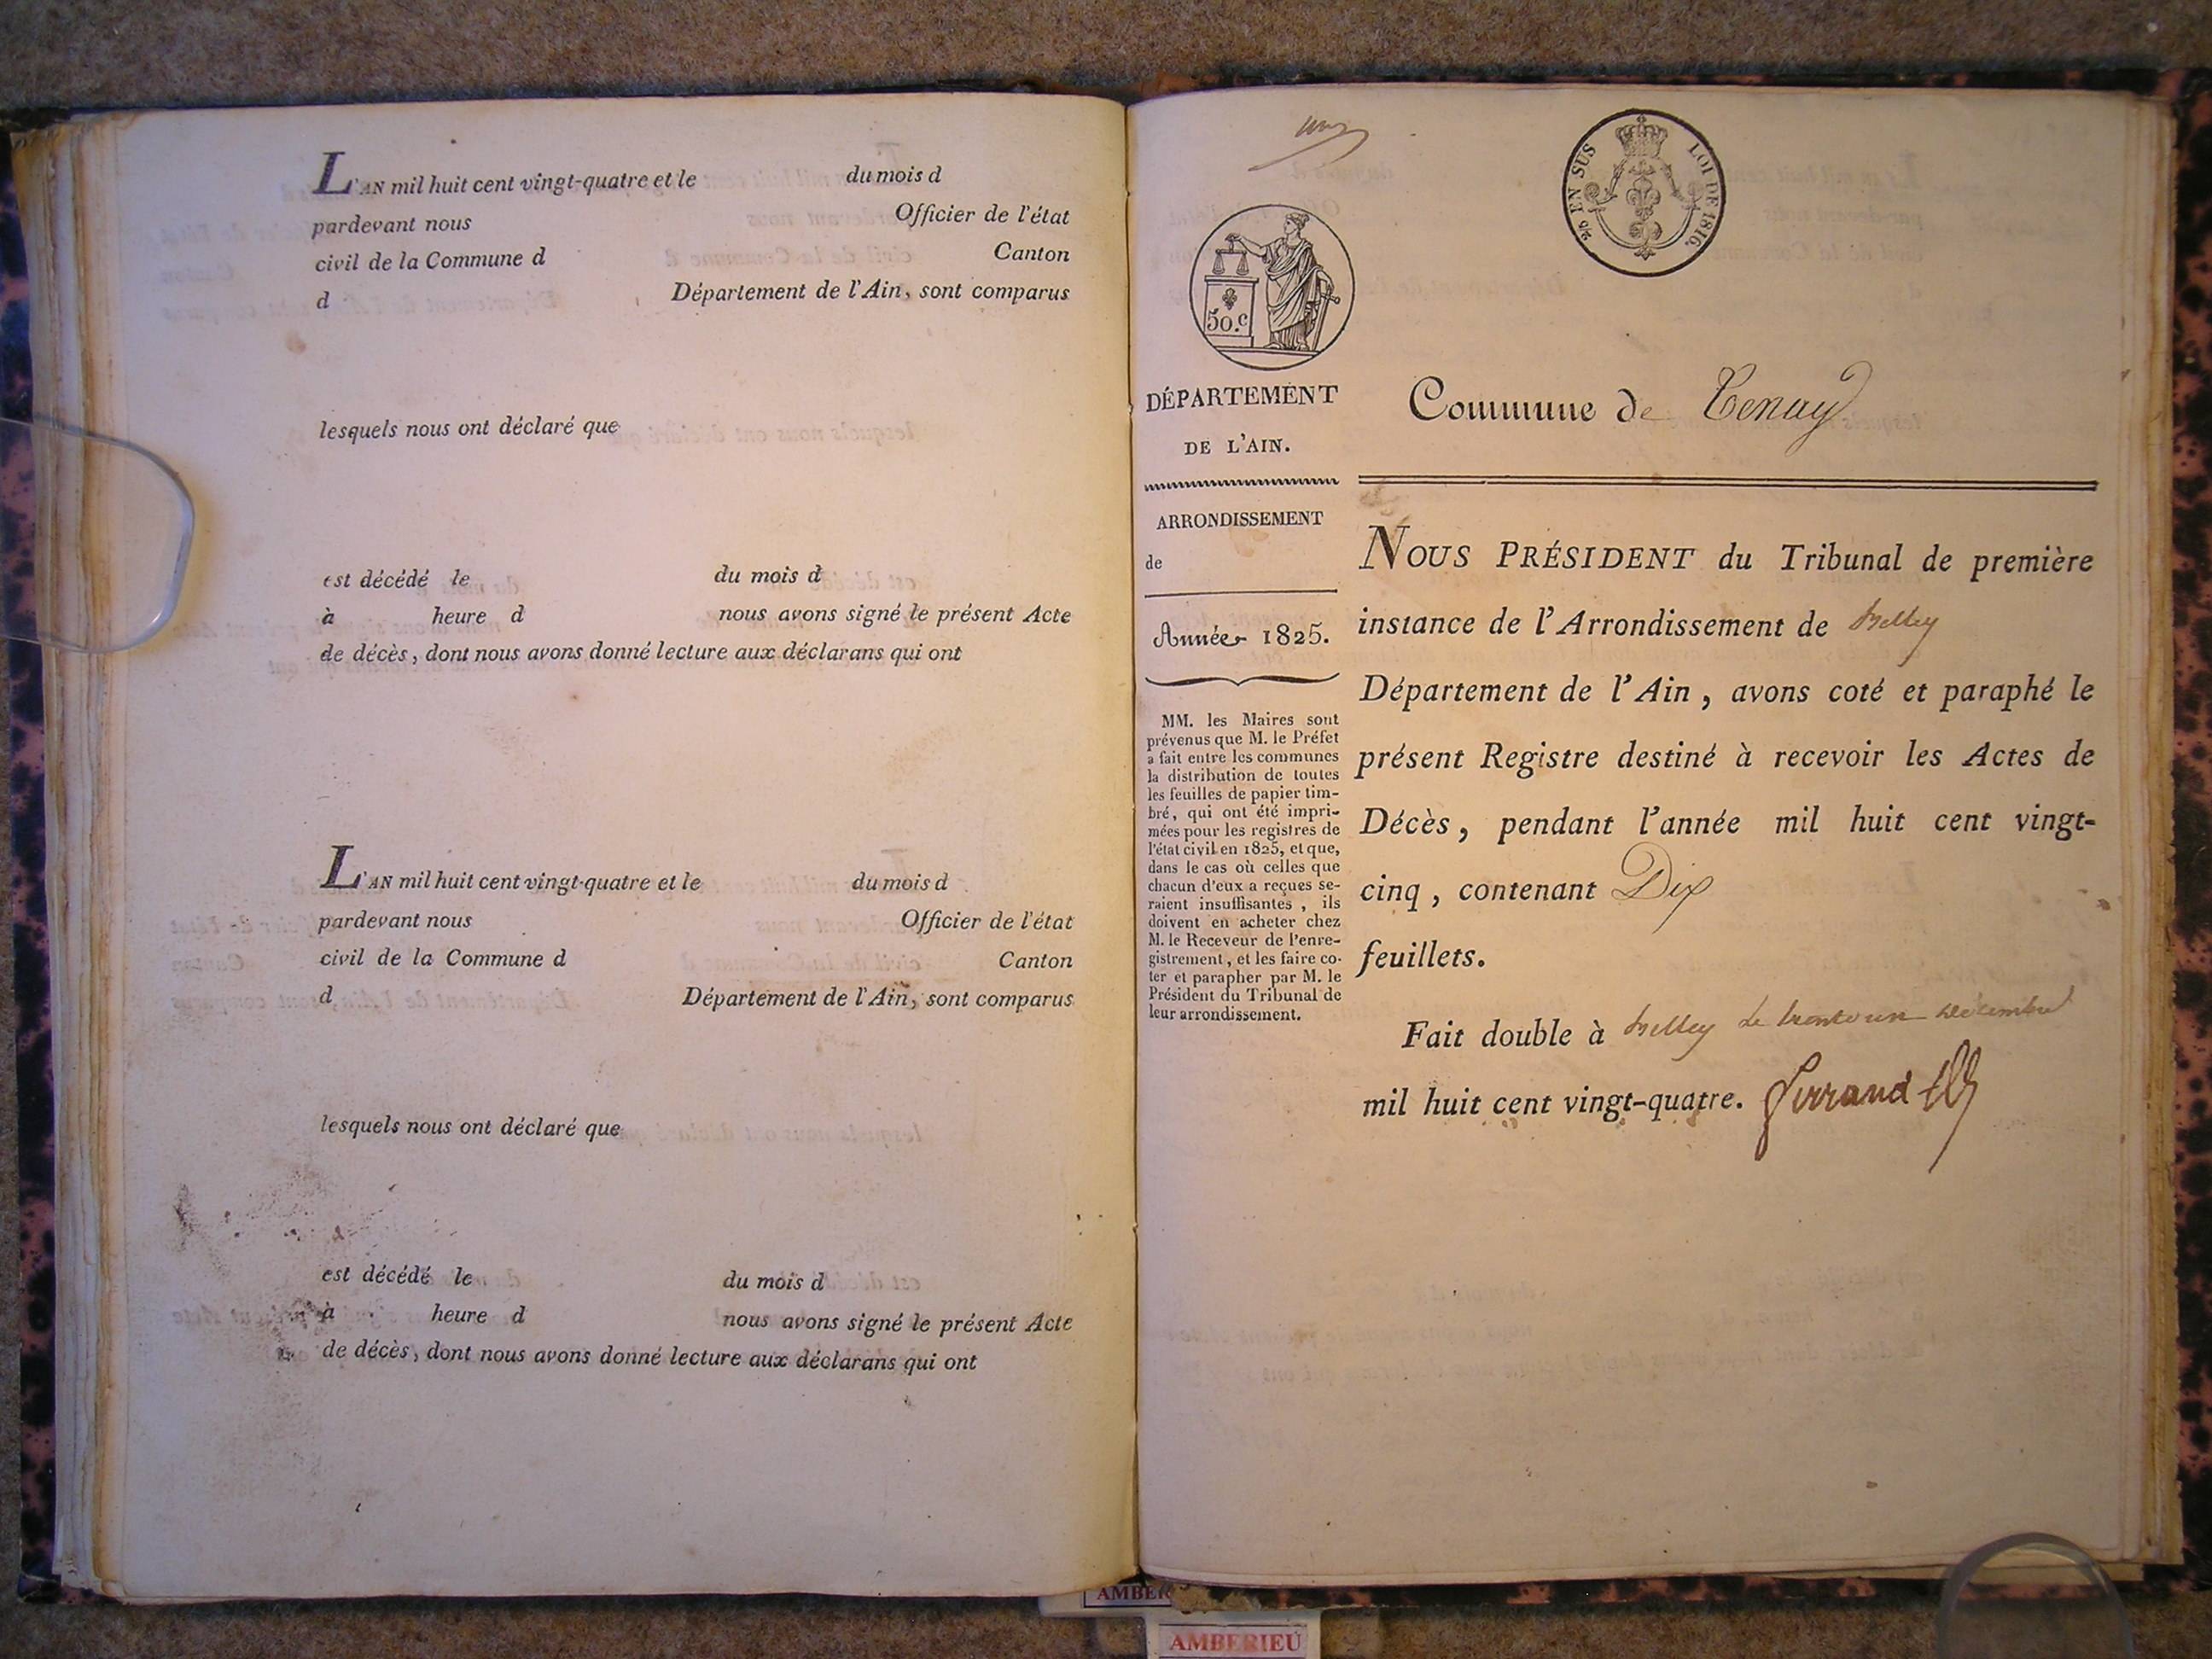 L'AN mil huit cent vingt-quatre et le du mois d
pardevant nous Officier de l'état
civil de la Commune d Canton
d Département de l'Ain, sont comparus
lesquels nous ont déclaré que
est décédé le du mois d
à heure d nous avons signé le présent Acte
de décès, dont nous avons donné lecture aux déclarans qui ont
L'AN mil huit cent vingt-quatre et le du mois d
pardevant nous Officier de l'état
civil de la Commune d Canton
d Département de l'Ain, sont comparus
lesquels nous ont déclaré que
est décédé le du mois d
à heure d nous avons signé le présent Acte
de décès, dont nous avons donné lecture aux déclarans qui ont
EN SUS LOI DE 1816.
50.c
DÉPARTEMENT
DE L'AIN.
ARRONDISSEMENT
de
Année 1825.
MM. les Maires sont
prévenus que M. le Préfet
a fait entre les communes
la distribution de toutes
les feuilles de papier tim-
bré, qui ont été impri-
mées pour les registres de
l'état civil en 1825, et que,
dans le cas où celles que
chacun d'eux a reçues se-
raient insuffisantes, ils
doivent en acheter chez
M. le Receveur de l'enre-
gistrement, et les faire co-
ter et parapher par M. le
Président du Tribunal de
leur arrondissement.
Commune de Tenay
NOUS PRÉSIDENT du Tribunal de première
instance de l'Arrondissement de Belley
Département de l'Ain, avons coté et paraphé le
présent Registre destiné à recevoir les Actes de
Décès, pendant l'année mil huit cent vingt-
cinq, contenant Dix
feuillets.
Fait double à Belley le trente un décembre
mil huit cent vingt-quatre. Ferrand
AMBER
AMBERIEU